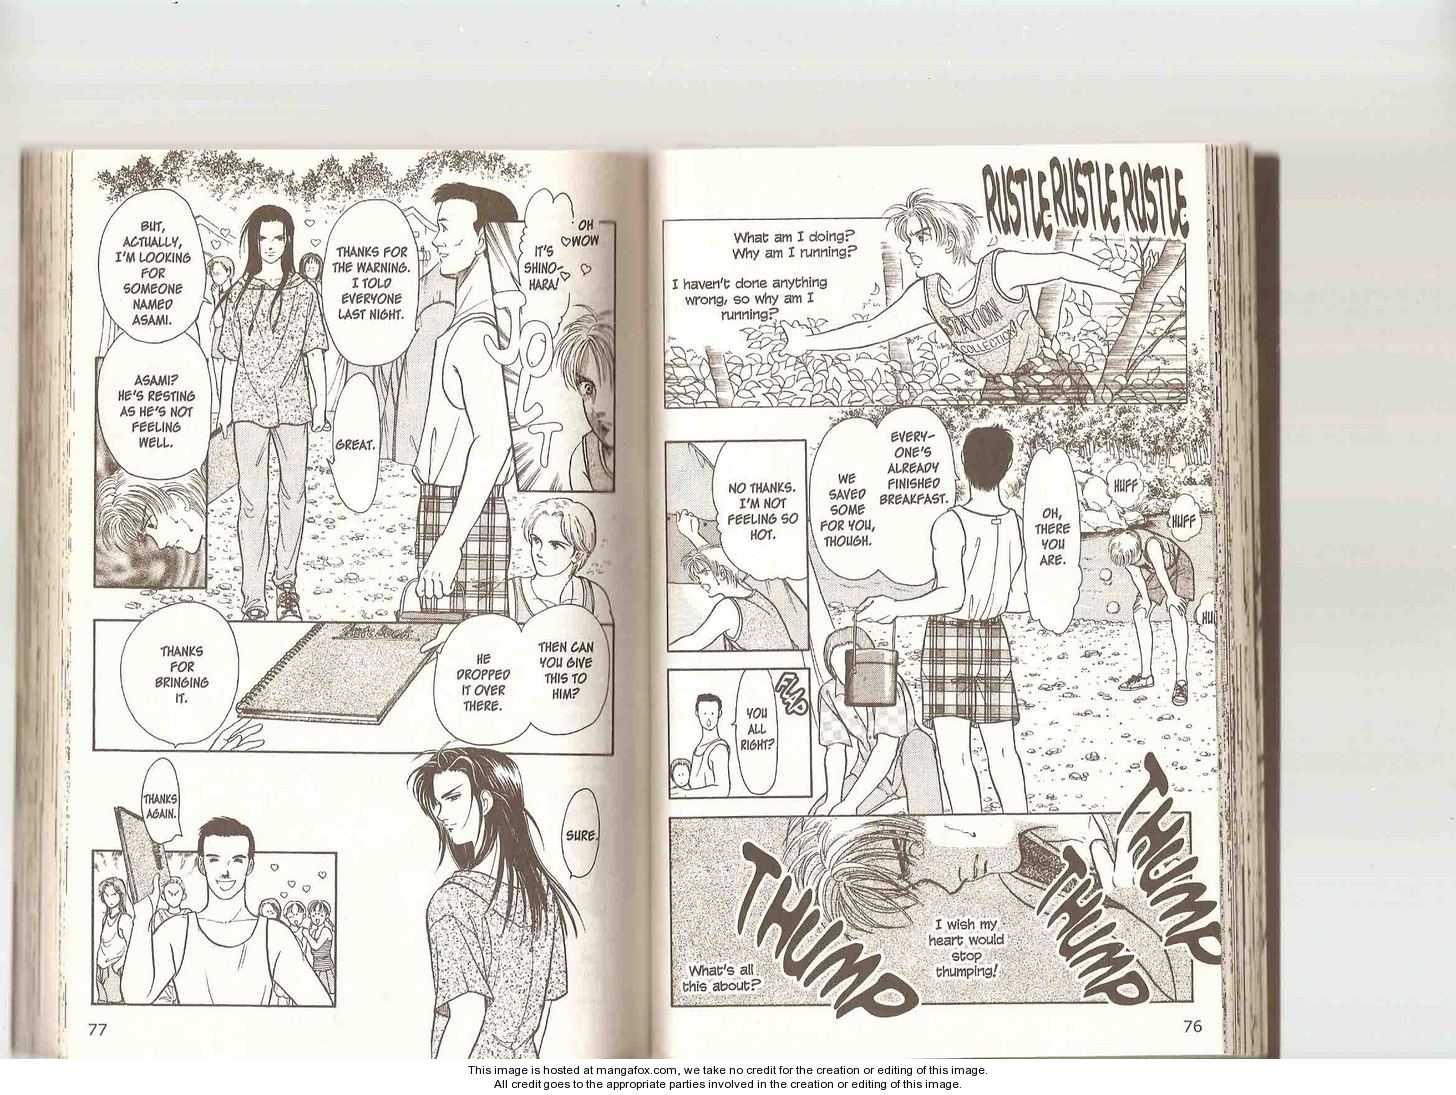 RUSTLE RUSTLE RUSTLE
What am I doing?
Why am I running?
I haven't done anything
wrong, so why am I
running?
STATION
COLLECTION
HUFF
HUFF
OH,
THERE
YOU
ARE.
EVERY-
ONE'S
ALREADY
FINISHED
BREAKFAST.
WE
SAVED
SOME
FOR YOU,
THOUGH.
NO THANKS.
I'M NOT
FEELING SO
HOT.
FLAP
YOU
ALL
RIGHT?
THUMP
THUMP
THUMP
I wish my
heart would
stop
thumping!
What's all
this about?
76
OH
WOW
IT'S
SHINO-
HARA!
JOLT
THANKS FOR
THE WARNING.
I TOLD
EVERYONE
LAST NIGHT.
GREAT.
BUT,
ACTUALLY,
I'M LOOKING
FOR
SOMEONE
NAMED
ASAMI.
ASAMI?
HE'S RESTING
AS HE'S NOT
FEELING
WELL.
THEN CAN
YOU GIVE
THIS TO
HIM?
HE
DROPPED
IT OVER
THERE.
THANKS
FOR
BRINGING
IT.
SURE.
THANKS
AGAIN.
77
This image is hosted at mangafox.com, we take no credit for the creation or editing of this image.
All credit goes to the appropriate parties involved in the creation or editing of this image.